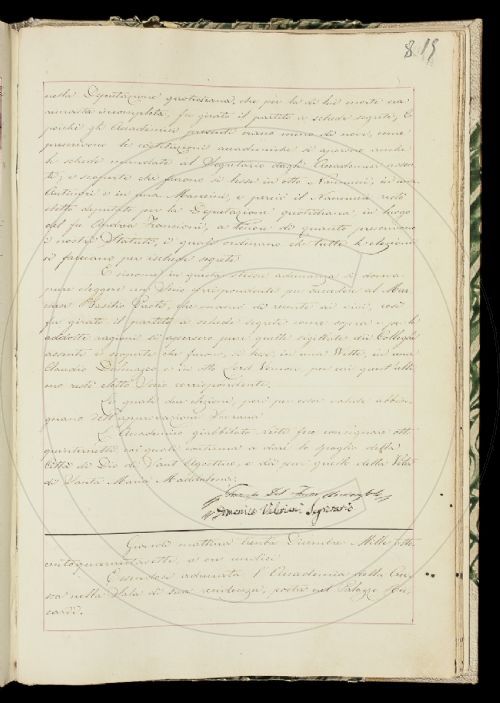 8. 19
nella Deputazione quotidiana, che per la di lui morte era
rimasta incompleta, fu girato il partito a schede segrete, E
poiché gli Accademici presenti erano meno di nove, come
prescrivono le costituzioni accademiche si apersero anche
le schede mandate al Segretario dagli Accademici assen-
ti, e scoperte che furono si lesse in otto Nannucci, in una
Centofanti e in una Mancini, e perciò il Nannucci restò
eletto deputato per la Deputazione quotidiana, in luogo
del fu Andrea Francioni, a tenore di quanto prescrivono
i nostri Statuti, i quali ordinano che tutte le elezioni
si facciano per ischede segrete.
E siccome in questa stessa adunanza si doveva
pure eleggere un Socio corrispondente per succedere al Mar-
chese Basilio Puoti, che mancò di recente ai vivi, così
fu girato il partito a schede segrete come sopra, per le
addotte ragioni si apersero pure quelle sigillate dei Colleghi
assenti e scoperte che furono, si lesse in una Witte, in una
Claudio Dalmazzo e in otto Lord Vernon per cui quest'ulti-
mo restò eletto Socio corrispondente.
Le quali due elezioni, però per esser valide abbiso-
gnano dell'approvazione Sovrana.
L'Accademico giubbilato
quarantasette coi quali continua a dare lo spoglio della
Città di Dio di Sant'Agostino, e dà pur quelli della Vita
di Santa Maria Maddalena.
Domenico Valeriani Segretario
Giovedì mattina trenta Dicembre Mille otto-
centoquarantasette, a ore undici
Essendosi adunata l'Accademia della Cru-
sca nella Sala di sua residenza, posta nel Palazzo Ric-
cardi.